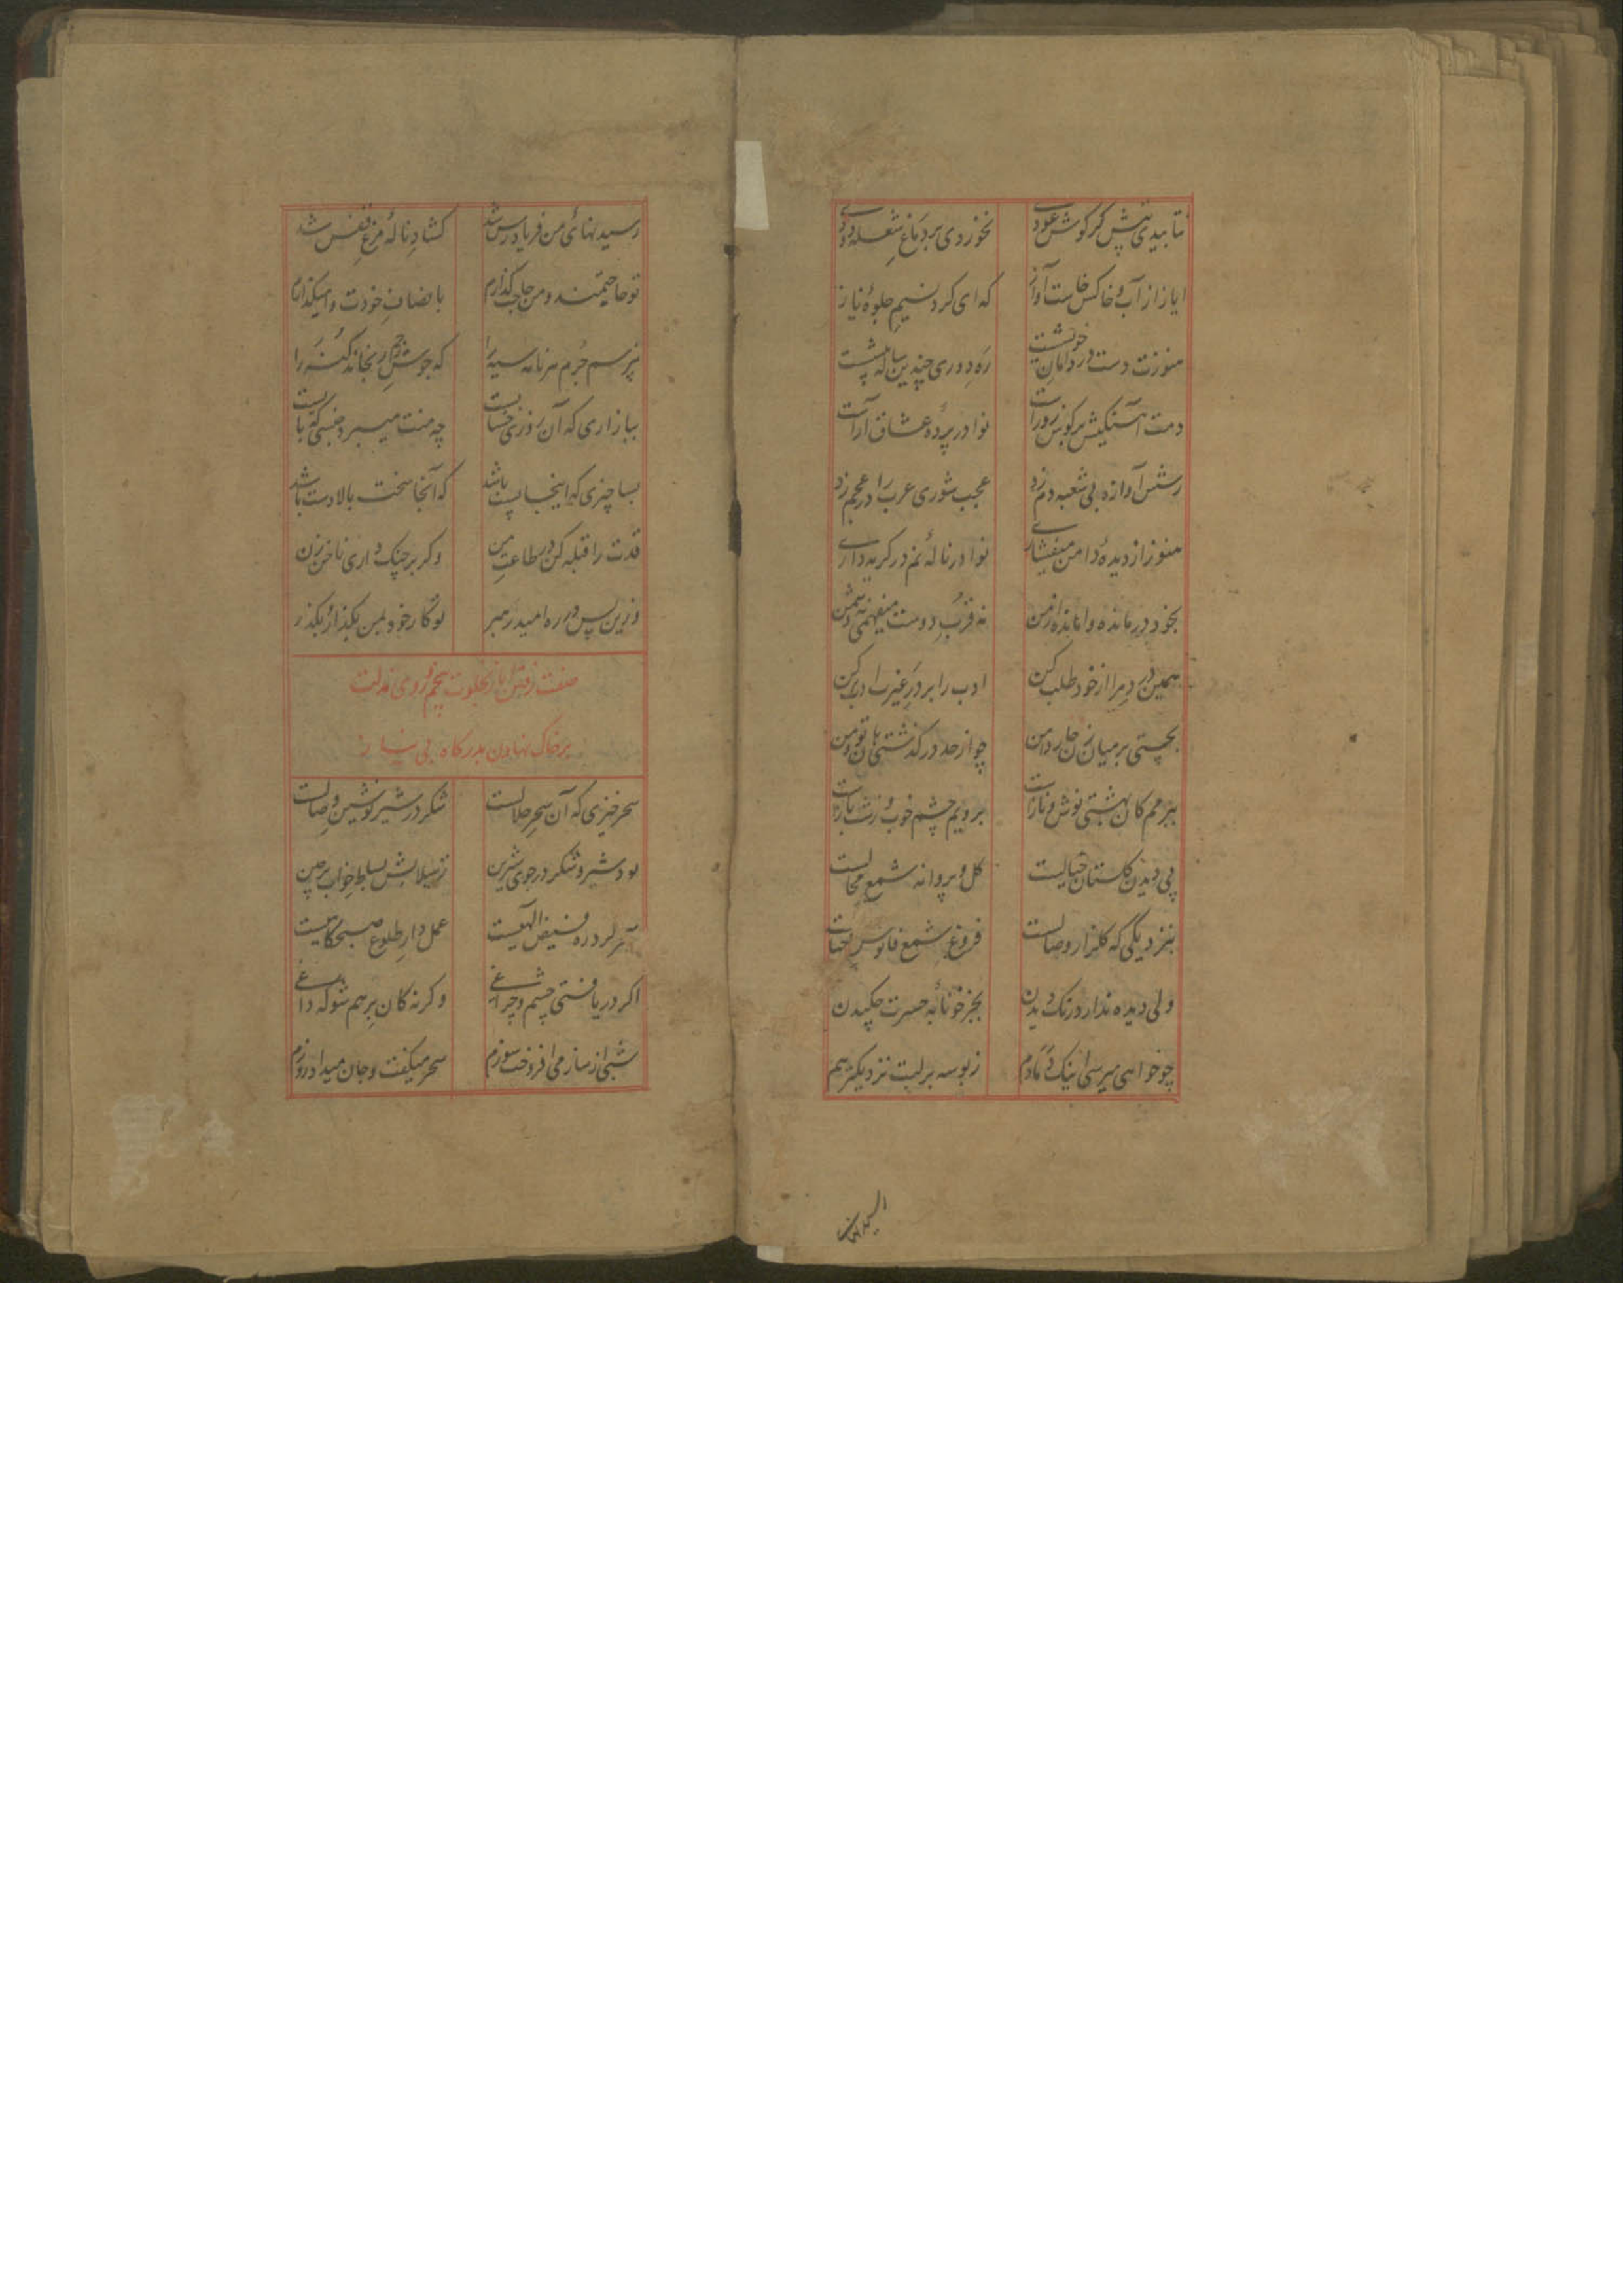 نتابیدی تپش گر گوش عودی نخوردی بر دماغ شعله دودی
ایاز از آب و خاکش خاست آواز که ای گرد نسیم جلوهٔ ناز
هنوزت دست در دامان خویشست ره دوری چنین ساله پیشست
دمت آهنگیش بر گوش نوا در پردهٔ عشاق
رسش آوازه بی شعبه دم زد عجب شوری عرب را در عجم زد
هنوز از دیدهٔ دامن میفشاری نوا در نالهٔ نم در گریه داری
بخود درماندهٔ واماندهٔ از من نه قرب دوست میفهمی نه دشمن
همین در دم مرا از خود طلب کن ادب را بر در غیرت ادب کن
بچستی بر میان زن چار دامن چو از حد درگذشتی با تو من
ببزمم کان بهشتی نوش و نازست برویم چشم خوب و زشت بازست
پی دیدن گلستان خیالیست گل و پروانه شمع محالیست
بنزدیکی که گلزار وصالست فروغ شمع فانوس
ولی دیده ندارد رنگ دیدن بجز خونابهٔ حسرت چکیدن
چو خواهی میرسی اینک دمادم ز بوسه بر لبت نزدیکترهم
رسیدنهای من فریادرس شد گشاد نالهٔ مرغ قفس شد
تو حاجتمند و من حاجت گذارم بانصاف خودت وامیگذارم
نپرسم جرم هر نامه سیه را که جوش رحم رنجاند گنه را
ببازاری که آن روزی حسابست چه منت میبرد جنسی که بابست
بسا چیزی که اینجا پست باشد که آنجا سخت بالادست باشد
قدت را قبله کن در طاعت من وگر بر چنگ داری ناخن زن
وزین پس در ره امید رهبر تو کار خود بمن بگذار و بگذر
صفت رفتن ایاز بخلوت پنجم و روی مذلت
بر خاک نهادن بدرگاه بی نیاز
سحرخیزی که آن سحر حلالست شکر در شیر نوشین وصالست
بود شیر و شکر در جوی شیرین ز سیلابش بساط خواب برچین
فیض الهیست عمل دار طلوع صبحگاهیست
اگر دریافتی چشم و چراغی وگرنه کان برهم شو که داغی
شبی از ساز می افروخت سوزم سحر میگفت و جان میداد روزم